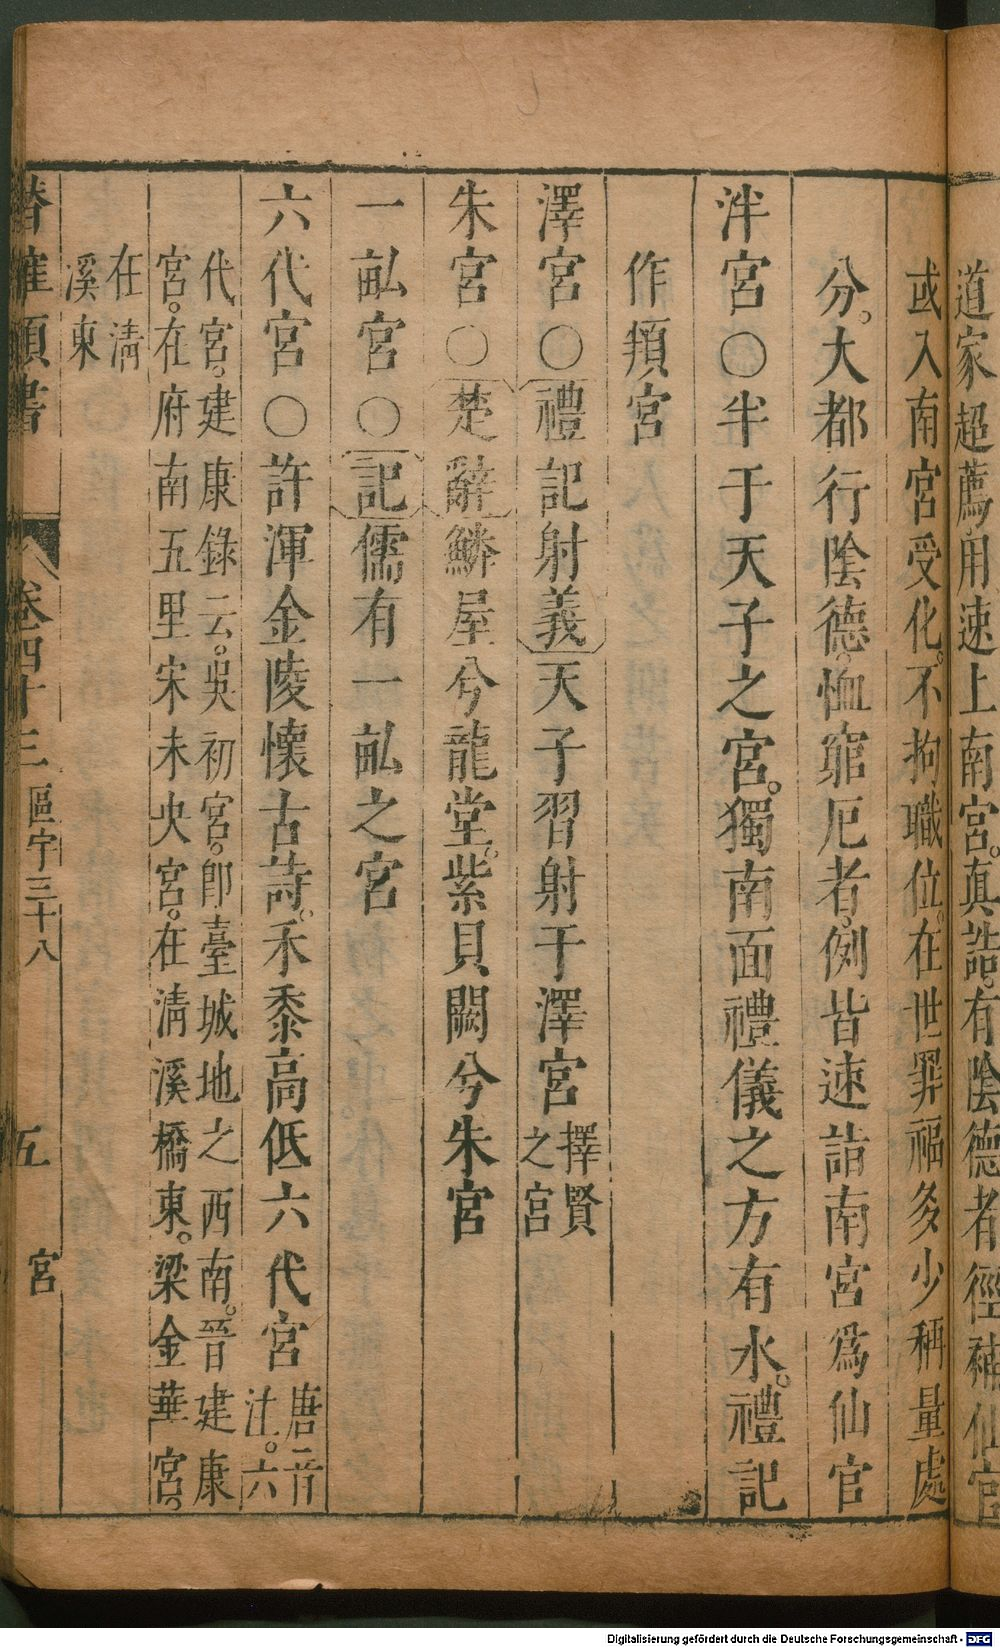 道家超薦用速上南宮。真誥。有陰德者徑補仙官
或入南宮受化。不拘職位。在世罪福多少稱量處
分。大都行陰德。恤窮厄者。例皆速詣南宮為仙官
泮宮〇半于天子之宮。獨南面禮儀之方有水。禮記
作頖宮
澤宮〇禮記射義天子習射于澤宮擇賢之宮
朱宮〇楚辭鱗屋兮龍堂。紫貝闕兮朱宮
一畝宮〇記儒有一畝之宮
六代宮〇許渾金陵懷古詩。禾黍高低六代宮唐音注。六
代宮。建康錄云。吳初宮。卽臺城地之西南。晉建康
宮。在府南五里宋未央宮。在淸溪橋東。梁金華宮。
在淸
溪東
潛確類書 卷四十三 區宇三十八 五 宮
Digitalisierung gefördert durch die Deutsche Forschungsgemeinschaft - DFG